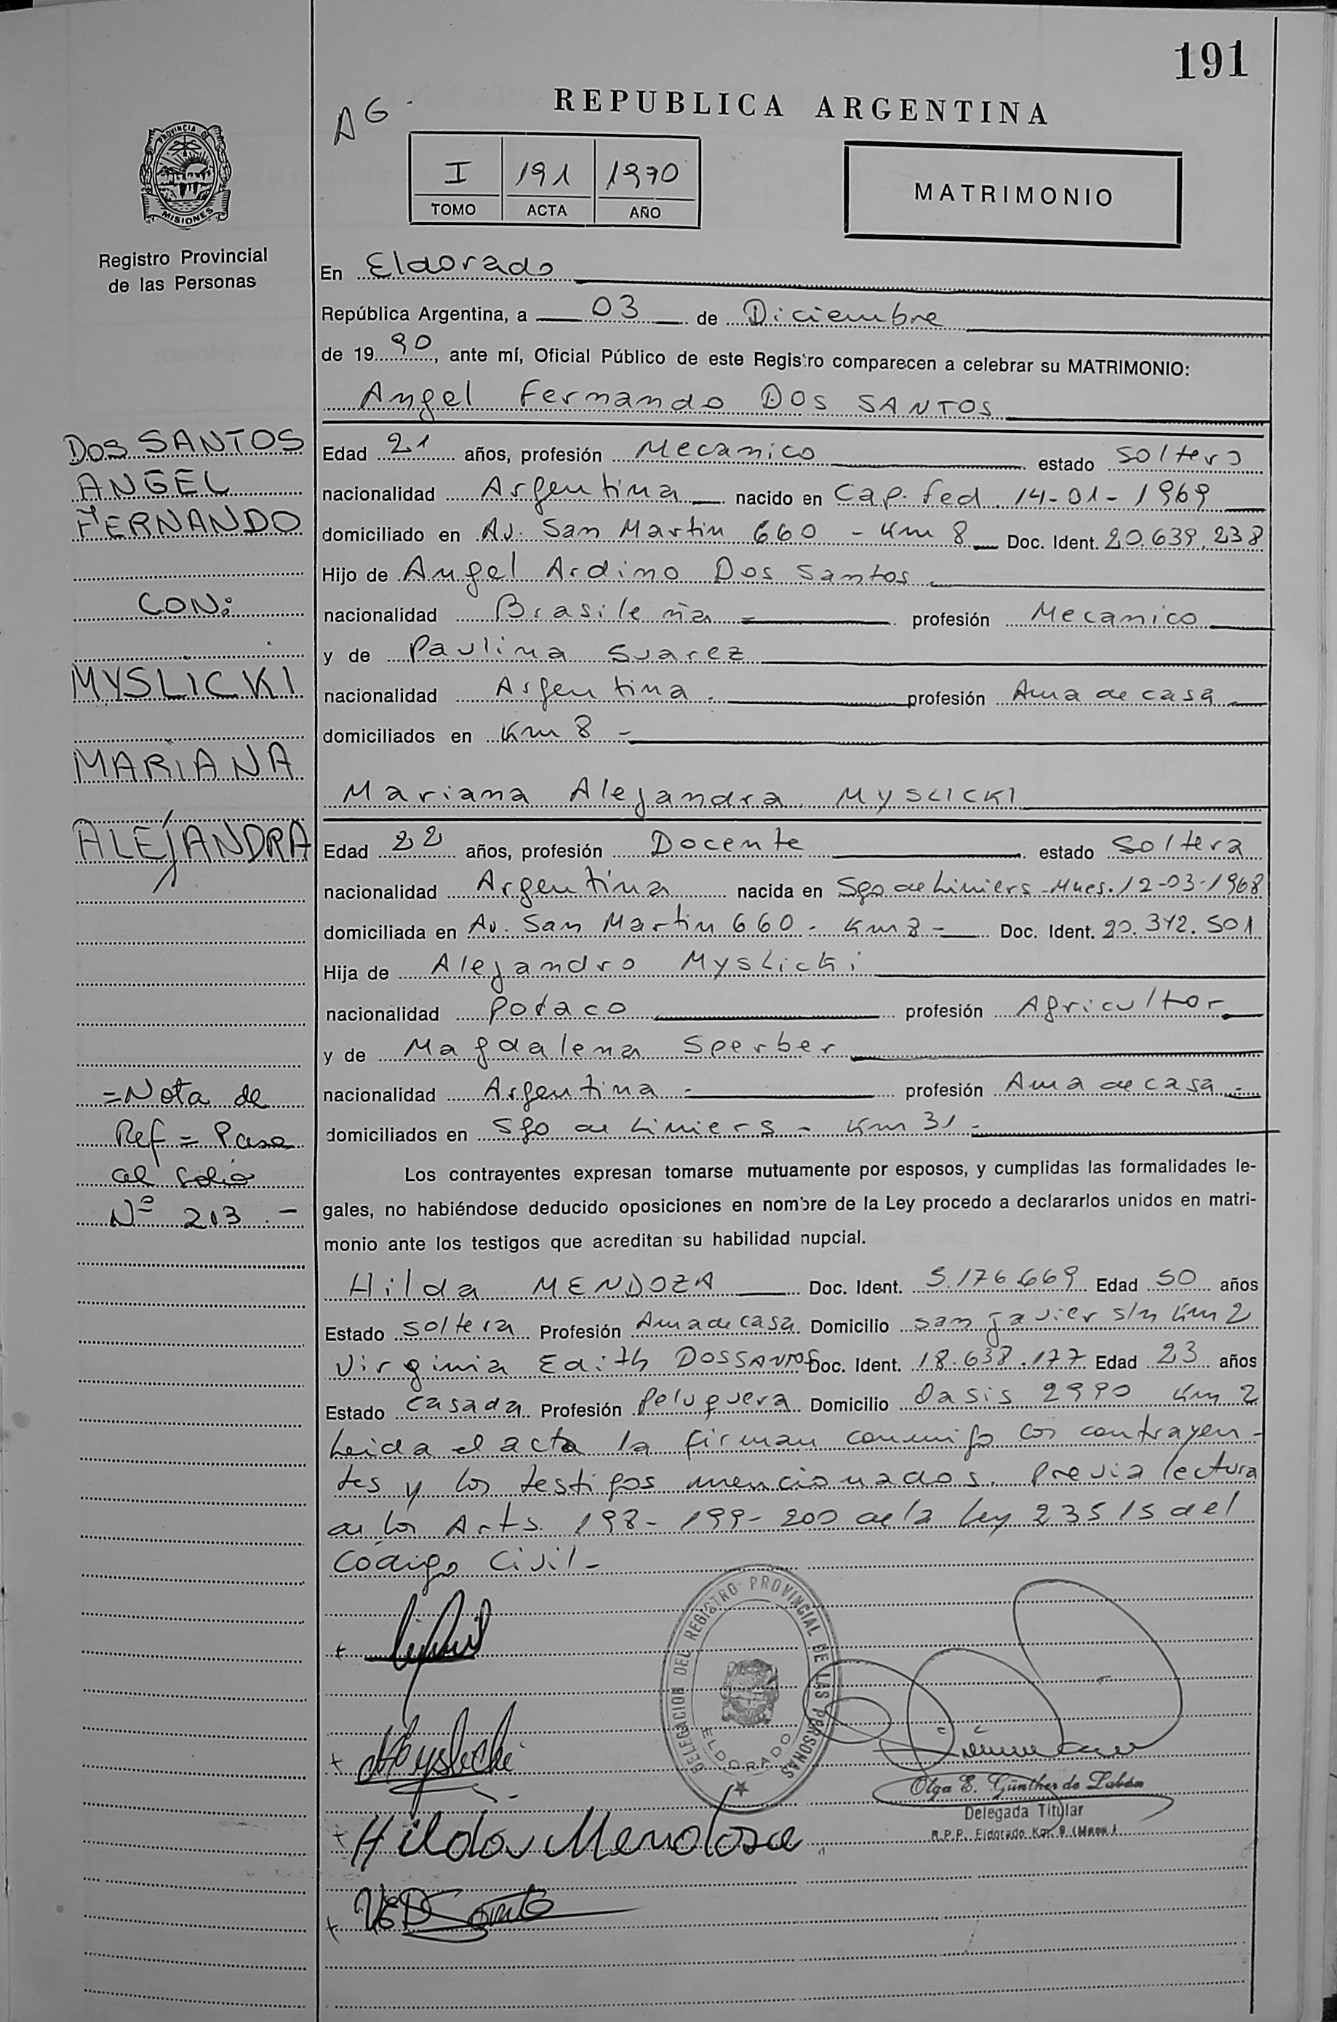 191
REPUBLICA ARGENTINA
AG.
I 191 1990
TOMO ACTA AÑO
MATRIMONIO
PROVINCIA DE
MISIONES
Registro Provincial
de las Personas
En Eldorado
República Argentina, a 03 de Diciembre
de 19 90, ante mí, Oficial Público de este Registro comparecen a celebrar su MATRIMONIO:
Angel Fernando DOS SANTOS
Edad 21 años, profesión Mecanico estado soltero
nacionalidad Argentina nacido en Cap. Fed. 14-01-1969
domiciliado en Av. San Martin 660 - Km 8 Doc. Ident. 20.639.238
Hijo de Angel Ardino Dos Santos
nacionalidad Brasileña profesión Mecanico
y de Paulina Suarez
nacionalidad Argentina. profesión Ama de casa
domiciliados en Km 8 -
Mariana Alejandra MYSLICKI
Edad 22 años, profesión Docente estado soltera
nacionalidad Argentina nacida en Sgo de Liniers - Mnes. 12-03-1968
domiciliada en Av. San Martin 660 - Km 8 - Doc. Ident. 20.342.501
Hija de Alejandro Myslicki
nacionalidad Polaco profesión Agricultor
y de Magdalena Sperber
nacionalidad Argentina - profesión Ama de casa -
domiciliados en Sgo de Liniers - Km 31 -
Los contrayentes expresan tomarse mutuamente por esposos, y cumplidas las formalidades le-
gales, no habiéndose deducido oposiciones en nombre de la Ley procedo a declararlos unidos en matri-
monio ante los testigos que acreditan su habilidad nupcial.
Hilda MENDOZA Doc. Ident. 5.176.669 Edad 50 años
Estado soltera Profesión Ama de casa Domicilio san javier s/n Km 2
Virginia Edith DOSSANTOS Doc. Ident. 18.638.177 Edad 23 años
Estado casada Profesión Peluquera Domicilio Oasis 2990 Km 2
Leida el acta la firman conmigo los contrayen-
tes y los testigos mencionados. Previa lectura
de los Arts. 198-199-200 de la Ley 23515 del
Código Civil-
DELEGACION DEL REGISTRO PROVINCIAL DE LAS PERSONAS
ELDORADO
Myslicki
Hilda Mendosa
Olga E. Günther de Labán
Delegada Titular
R.P.P. Eldorado Km. 9 (Mnes.)
DOS SANTOS
ANGEL
FERNANDO
CON:
MYSLICKI
MARIANA
ALEJANDRA
=Nota de
Ref= Pasa
al folio
Nº 213.-